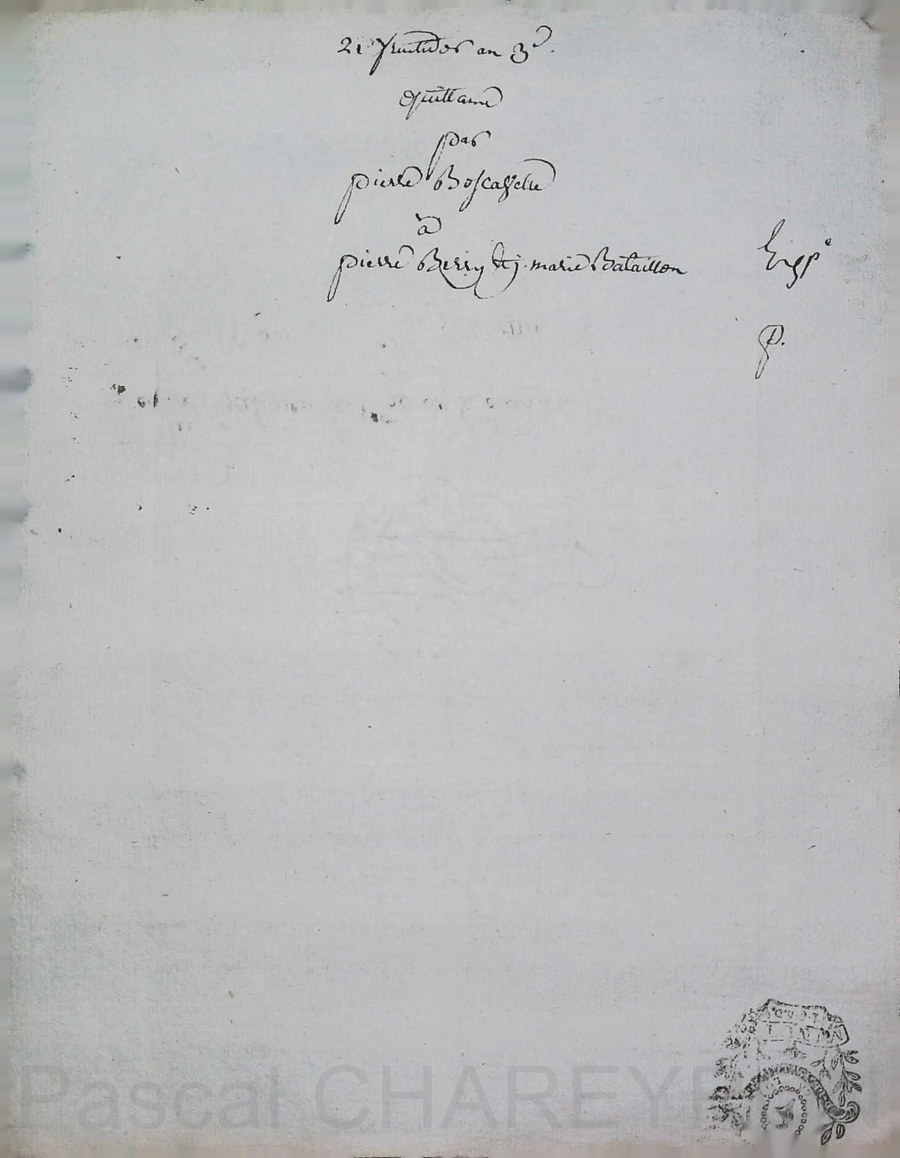 21 fructidor an 3e.
Quittance
par
pierre Boscassele
à
pierre Berry & j. marie Bataillon
Exp.e
P.
Pascal CHAREYRON